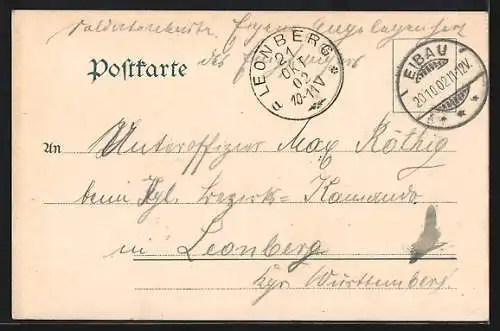 Soldatenkarte. Eigene Angelegenheit
des Empfängers
Postkarte
LEONBERG
21
OKT
02
10-11V
EIBAU
20.10.02.11-12V.
An Unteroffizier Max Röthig
beim Kgl. Bezirks=Kommando
in Leonberg
Kgr. Württemberg.